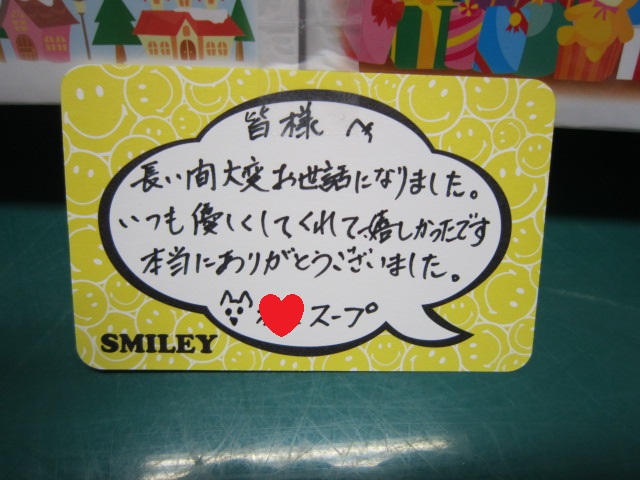 皆様へ
長い間大変お世話になりました。
いつも優しくしてくれて嬉しかったです
本当にありがとうございました。
スープ
SMILEY